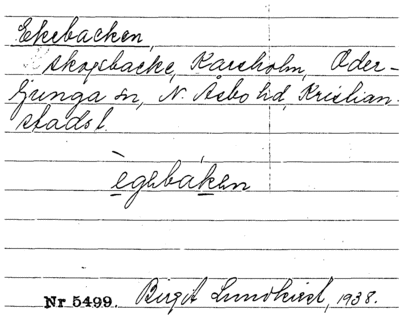 Ekebacken,
skogsbacke, Karsholm, Oder-
ljunga sn, N. Åsbo hd, Kristian-
stads l.
ègebáken
Nr 5499. Birgit Lundkvist, 1938.